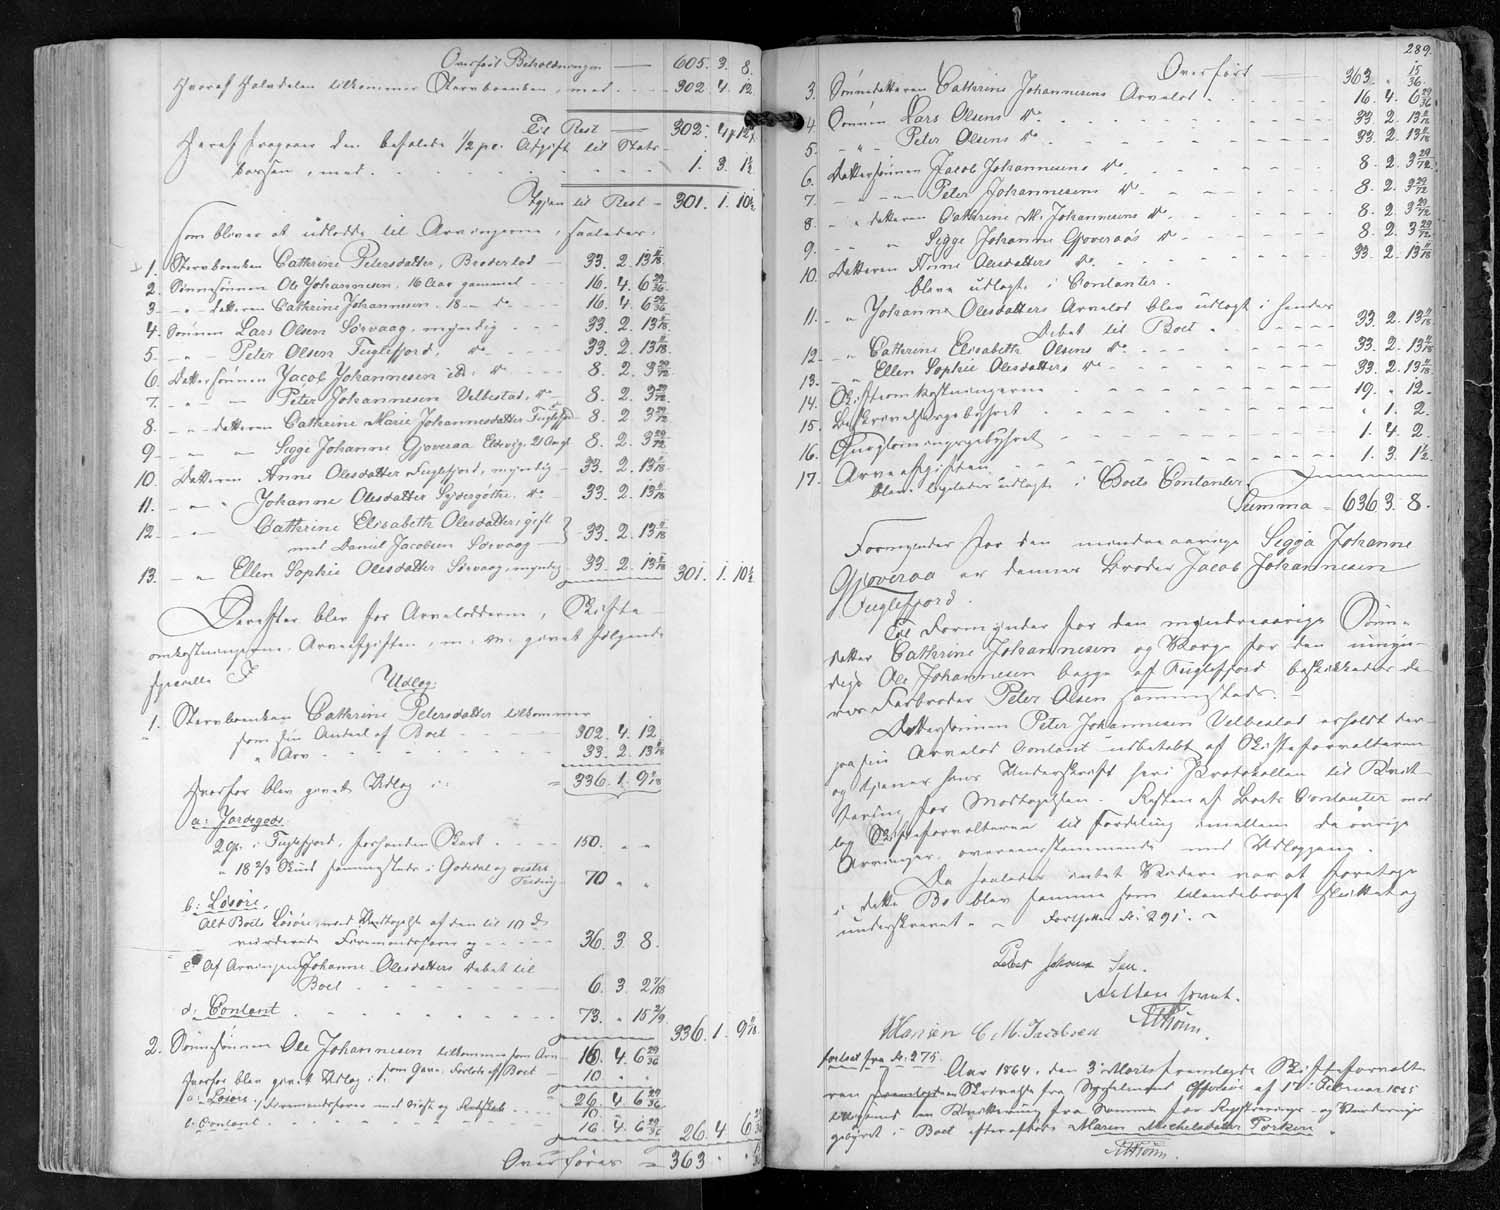 Overført Beholdningen — 605. 3. 8.
Hvoraf Halvdelen tilkommer Stervboenken, med . . . 302. 4. 12
Til Rest — 302. 4. 12.
Heraf fragaaer den befalede 1/2 pc. Afgift til Stats-
kassen, med . . . 1. 3. 1 1/2
Igjen til Rest — 301. 1. 10 1/2
som bliver at udlodde til Arvingerne, saaledes:
1. Stervboenken Cathrine Petersdatter, Broderlod — 33. 2. 13 11/18
2. Sønnesønnen Ole Johannesen, 16 Aar gammel — 16. 4. 6 29/36
3. — " — datteren Cathrine Johannesen, 18 — do — 16. 4. 6 29/36
4. Sønnen Lars Olsen Sørvaag, myndig — 33. 2. 13 11/18
5. — " — Peter Olsen Fuglefjord, do — 33. 2. 13 11/18
6. Dattersønnen Jacob Johannesen ibd., do — 8. 2. 3 29/72
7. — " — Peter Johannesen Velbestad, do — 8. 2. 3 29/72
8. — " — datteren Cathrine Marie Johannesdatter Fuglefjord — 8. 2. 3 29/72
9. — " — Sigge Johanne Gjoveraa Eldevig, 21 Aargl — 8. 2. 3 29/72
10. Datteren Anne Olesdatter Fuglefjord, myndig — 33. 2. 13 11/18
11. — " — Johanne Olesdatter Sydergøthe, do — 33. 2. 13 11/18
12. — " — Cathrine Elisabeth Olesdatter, gift
med Daniel Jacobsen Sørvaag — 33. 2. 13 11/18
13. — " — Ellen Sophie Olesdatter Sørvaag, myndig 33. 2. 13 11/18 301. 1. 10 1/2
Derefter blev for Arvelodderne, Skifte-
omkostningerne, Arveafgiften, m: v: givet følgende
specielle
Udlog:
1. Stervboenken Cathrine Petersdatter tilkommer
som sin Andeel af Boet — 302. 4. 12
" Arv — 33. 2. 13 11/18
Hvorfor blev givet Udlog i: = 336. 1. 9 11/18
a: Jordegods.
2 Gr. i Fuglefjord, — 150. " "
" 18 2/3 Skind sammesteds i Godedal og vestre
70 " "
b: Løsøre,
Alt Boets Løsøre, med Undtagelse af den til 10 d
vurderede Færemandsfarer og — 36. 3. 8.
c. Af Arvingen Johanne Olesdatters Debet til
Boet — 6. 3. 2 7/18
d: Contant — 73. " 15 2/9
336. 1. 9 11/18
2. Sønnesønnen Ole Johannesen tilkommer som Arv — 16. 4. 6 29/36
som Gave, Forlods af Boet — 10 " "
Hvorfor blev givet Udlog i: 26. 4. 6 29/36
a: Løsøre: Færemandsfarer med — 10 " "
b: Contant — 16. 4. 6 29/36 26. 4. 6 29/36
Overføres = 363 " 15/36
289.
Overført — 363 " 15/36
3. Sønnedatteren Cathrine Johannesens Arvelod — 16. 4. 6 29/36
4. Sønnen Lars Olsens do — 33. 2. 13 11/18
5. — " — Peter Olsens do — 33. 2. 13 11/18
6. Dattersønnen Jacob Johannesens do — 8. 2. 3 29/72
7. — " — Peter Johannesens do — 8. 2. 3 29/72
8. — " datteren Cathrine M. Johannesens do — 8. 2. 3 29/72
9. — " — Sigge Johanne Gjoveraås do — 8. 2. 3 29/72
10. Datteren Anne Olesdatters do — 33. 2. 13 11/18
bleve udlagte i Contanter.
11. — " Johanne Olesdatters Arvelod blev udlagt i hendes
Debet til Boet — 33. 2. 13 11/18
12. — " Cathrine Elisabeth Olsens do — 33. 2. 13 11/18
13. — " Ellen Sophie Olesdatters do — 33. 2. 13 11/18
14. Skifteomkostningerne — 19. " 12.
15. Beskrivelsesgebyhret — " 1. 2.
16. — 1. 4. 2.
17. Arveafgiften — 1. 3. 1 1/2.
bleve ligeledes udlagte i Boets Contanter.
Summa = 636. 3. 8.
Formynder for den mindreaarige Sigga Johanne
Gjoveraa er dennes Broder Jacob Johannesen
Fuglefjord.
Til Formynder for den myndreaarige Sønne-
datter Cathrine Johannesen og Værge for den umyn-
dige Ole Johannesen begge af Fuglefjord beskikkedes de-
res Farbroder Peter Olsen sammesteds.
Dattersønnen Peter Johannesen Velbestad erholdt der-
paa sin Arvelod Contant udbetalt af Skifteforvalteren
og tjener hans Underskrift heri Protokollen til Qvit-
tering for Modtagelsen. Resten af Boets Contanter med
tog Skifteforvalteren til Fordeling imellem de øvrige
Arvinger, overeensstemmende med Udlægget.
Da saaledes intet Videre var at foretage
i dette Bo blev samme som tilendebragt sluttet og
underskrevet. — Fortsættes Nr. 291. —
Peter Johan Sen.
Hansen C. M. Jacobsen HTSørn.
fortsat fra Nr. 275.
Aar 1864, den 3 Marts fremlagde Skifteforvalte-
ren Skrivelse fra Sysselmand af 17 Februar 1865
ledsaget en Qvittering fra Samme for Registrerings- og Vurderings-
gebyhret i Boet efter afdøde Maren Michelsdatter Porkeri